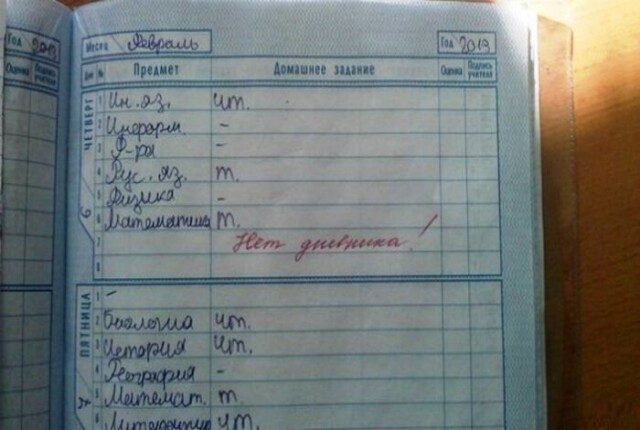 Год 2013
Оценка Подпись учителя
Месяц Февраль Год 2013
Дни № Предмет Домашнее задание Оценка Подпись учителя
ЧЕТВЕРГ
1 Ин. яз. чт.
2 Информ. -
3 Ф-ра -
4 Рус. яз. т.
5 Физика -
6 Математика т.
7 Нет дневника!
8
6
ПЯТНИЦА
1 -
2 Биология чт.
3 История чт.
4 География -
5 Математ. т.
6 Литература чт.